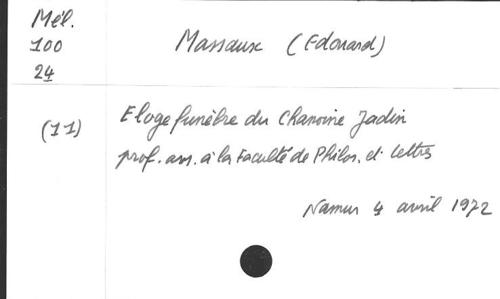 Mél.
100
24
Massaux (Edouard)
(11)
Eloge funèbre du Chanoine Jadin
prof. ass. à la Faculté de Philos. et lettres
Namur 4 avril 1972